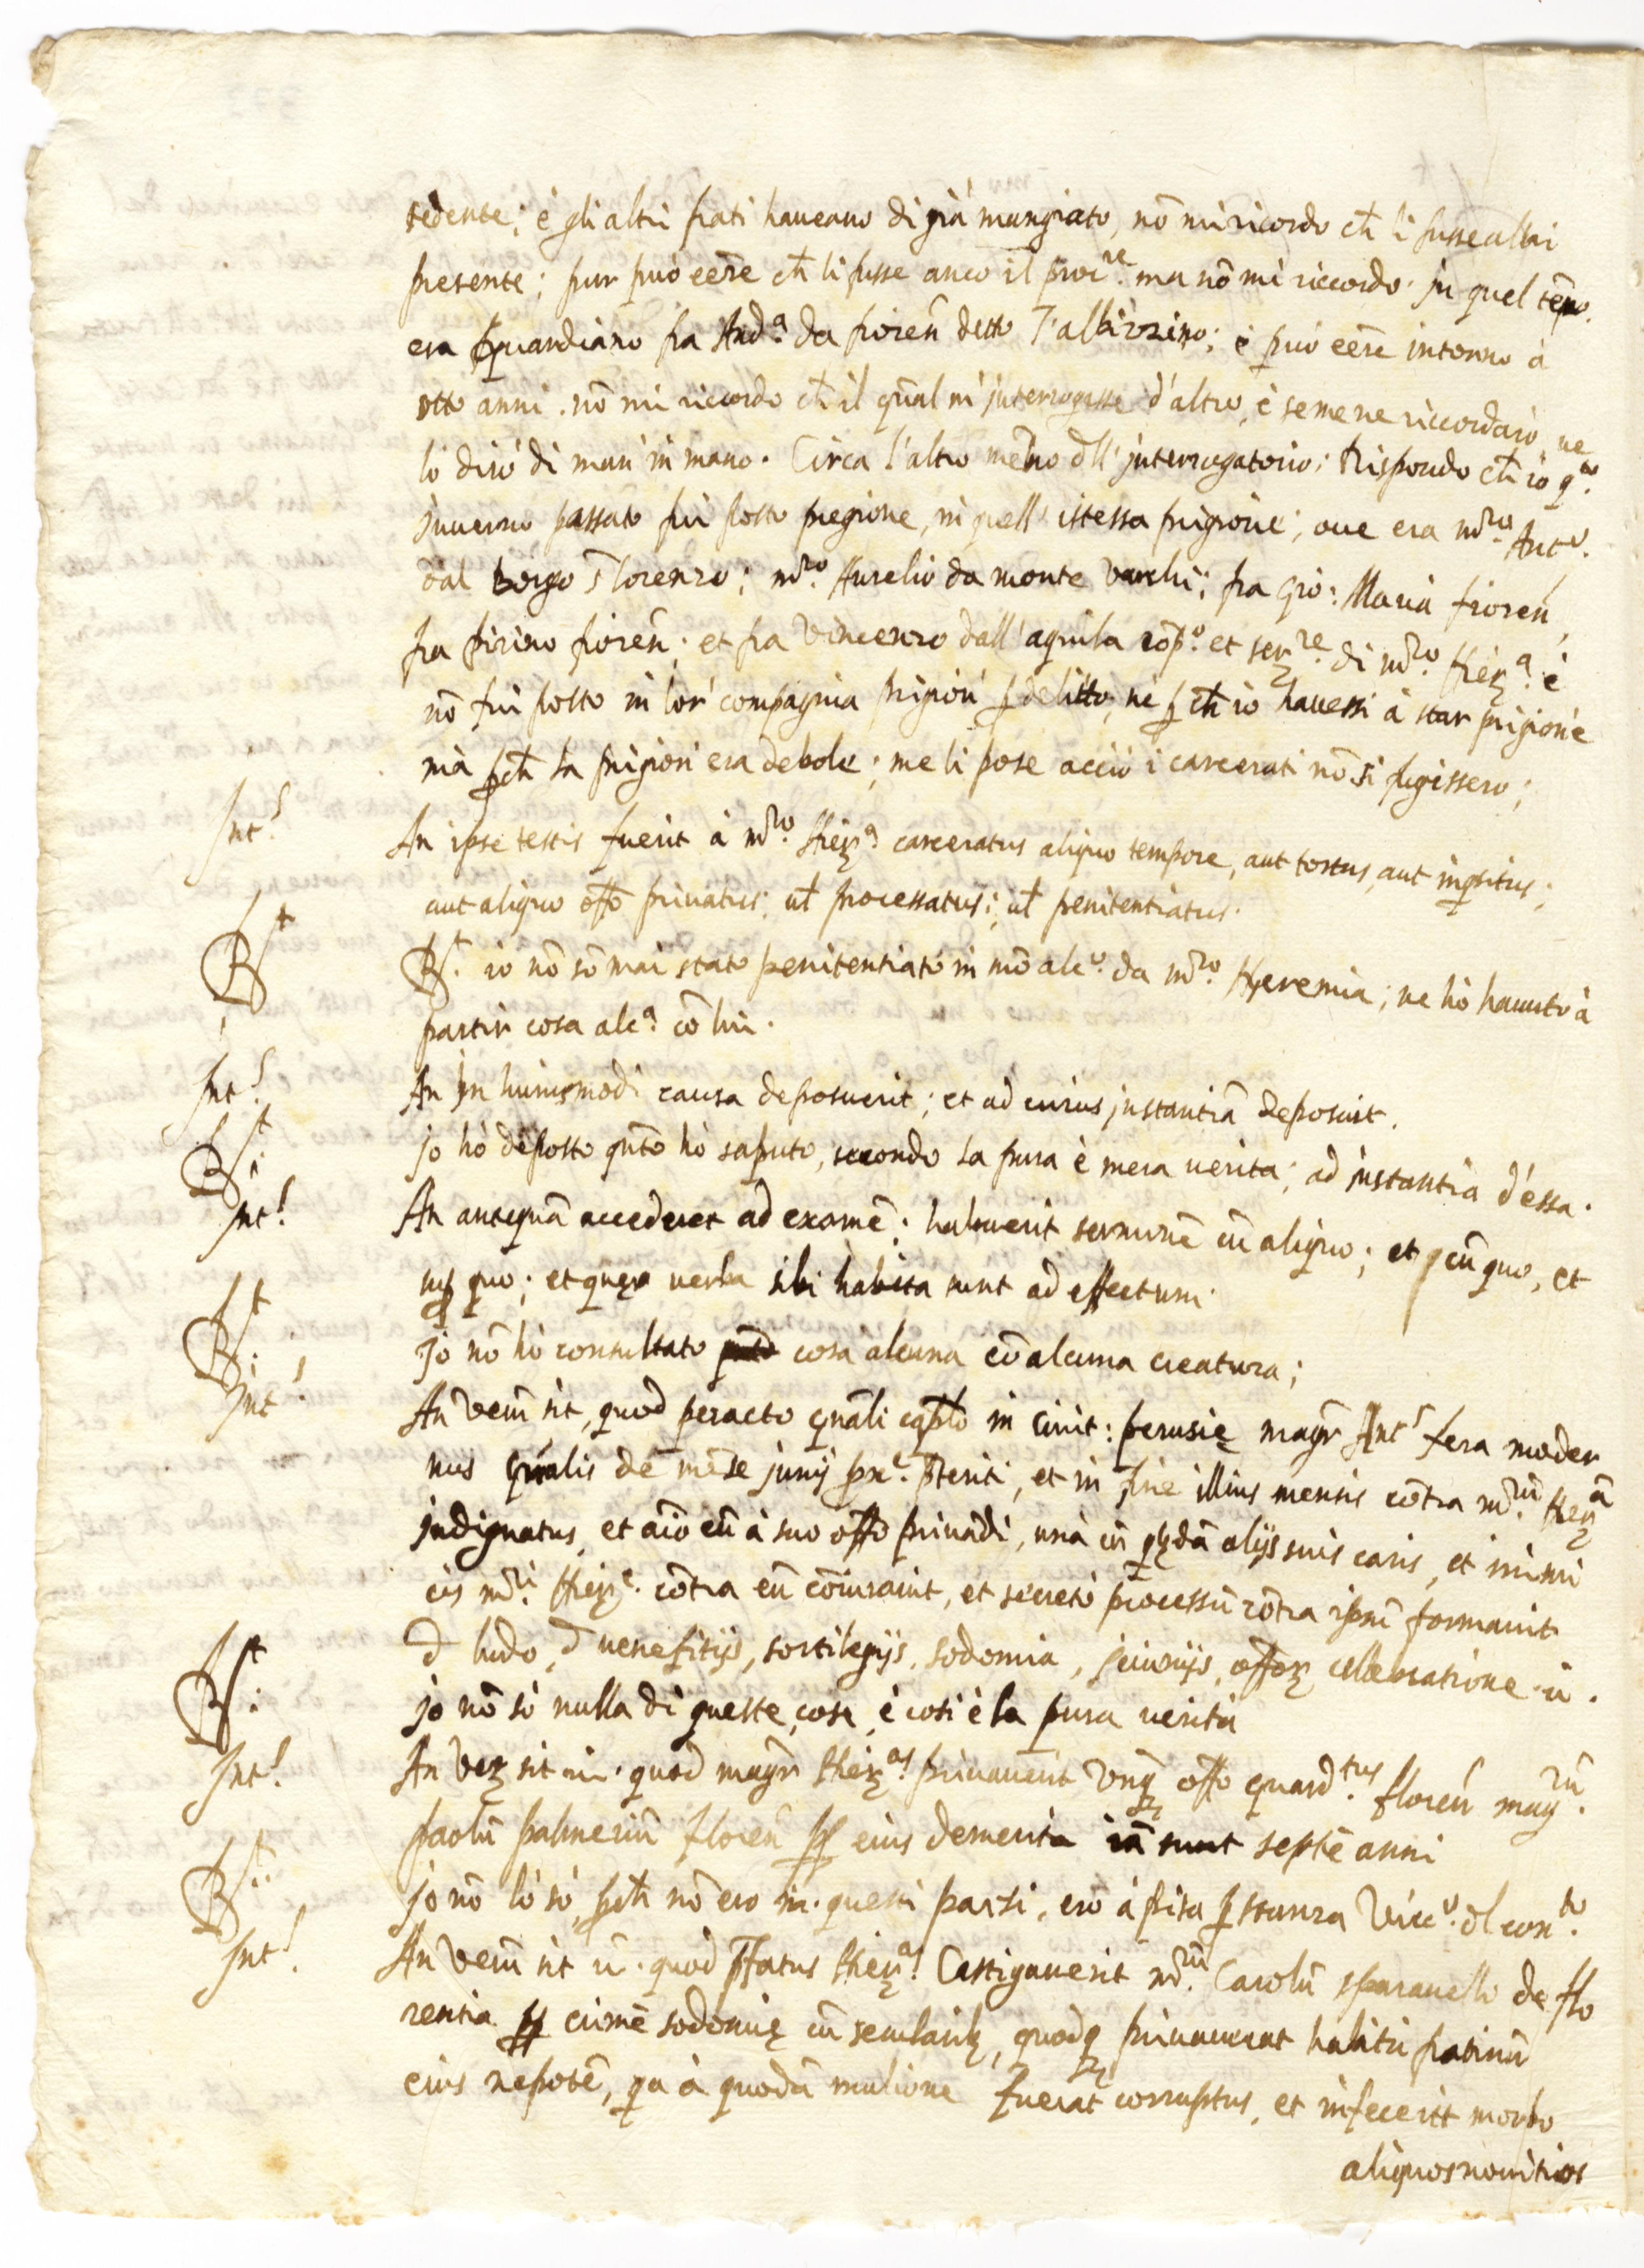 sedente; è gli altri frati haueano di già mangiato, nō mi ricordo ch̄ li fusse altri
presente; pur può eēre ch̄ li fusse anco il pro.re ma nō mi riccordo. in quel tēpo
era guardiano fra And.a da fiorēn detto l'albizzino; è può eēre intorno à
otto anni. nō mi riccordo ch̄ il gn̄al m'interrogasse d'altro, è se me ne riccordarò ne
lo dirò di man' in mano. Circa l'altro mēbro dll' interrogatorio; Rispondo ch̄ io q.to
Inuerno passato fui posto pregione, in quell' istessa prigione; oue era m.ro Ant.o
dal Borgo s lorenzo; m.ro Aurelio da monte varchi; fra Gio: Maria fiorēn,
fra pirino fiorēn. et fra Vincenzo dall' aquila et di m.ro Hier.a è
nō fui posto in lor' compagnia prigion' p delitto, nè p ch̄ io hauessi à star prigione
mà pch̄ la prigion' era debole; me li pose acciò i carcerati nō si fugissero;
Int.s An ipse testis fuerit à m.ro Hier.a carceratus aliquo tempore, aut tortus, aut inqsitus;
aut aliquo offo priuatus; ul processatus; ul penitentiatus.
R.t R.t io nō sō mai stato penitentiato in mō alc.o da m.ro Heremia; ne hò hauuto à
partir cosa alc.a cō lui.
Int.s An in huiusmodi causa deposuerit; et ad cuius instantiā deposuit.
R.t Io hò deposto qn̄to hò saputo, secondo la pura è mera uerita; ad instantia d'essa.
Int.s An antequā accederet ad examē; habuerit sermonē cū aliquo; et cū quo, et
sup quo; et que uerba sibi habita sunt ad effectum.
R.t Io nō hò consultato cosa alcuna cō alcuna creatura;
Int.s An verū sit, quod peracto gn̄ali capłō in Ciuit: perusię magr Ant.s fera moder
nus gn̄alis de mēse junij px.e p̄teriti, et in fine illius mensis cōtra m.rū Hier.ā
indignatus, et aīo eū à suo offo priuādi, unà cū qdā alijs suis caris, et inimi
cis m.ri Hier.e cōtra eū cōiurauit, et secretò processū cōtra ipsū formauit
d ludo, d uenefitijs, sortilegijs, sodomia, offor
R.t Io nō sò nulla di queste cose, è cosi è la pura uerità
Int.s An ver sit quod magr Hier.as priuauerit offo guard.tus florēn mag.rū
paolū palmeriū florēn pp eius demerita iā sunt septē anni
R.t Io nō lo sò, pch̄ nō ero in questi parti, ero à pisa p stanza Vicc.o dl con.to
Int.s An verū sit quòd p̄fatus Hier.as Castigauerit m.rū Carolū de flo
rentia pp crimē sodomię cū secularib, quodq priuauerat habitu fratrū
eius nepotē, qa à quodā mulione fuerat corruptus, et infecerit morbo
aliquos nouitios